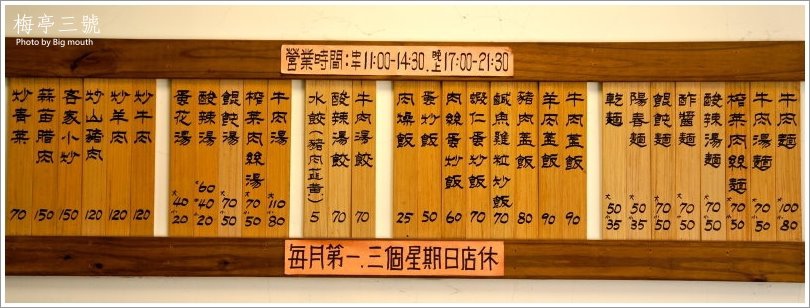 梅亭三號
Photo by Big mouth
營業時間：中11:00-14:30.晚上17:00-21:30
牛肉麵 大100 小80
牛肉湯麵 大70 小50
榨菜肉絲麵 大70 小50
酸辣湯麵 大70 小50
酢醬麵 大70 小50
餛飩麵 大70 小50
陽春麵 大50 小35
乾麵 大50 小35
牛肉蓋飯 90
羊肉蓋飯 90
豬肉蓋飯 80
鹹魚雞粒炒飯 70
蝦仁蛋炒飯 70
肉絲蛋炒飯 60
蛋炒飯 50
肉燥飯 25
牛肉湯餃 70
酸辣湯餃 70
水餃(豬肉韭黃) 5
牛肉湯 大110 小80
榨菜肉絲湯 大70 小50
餛飩湯 大70 小50
酸辣湯 大60 中40 小20
蛋花湯 大40 小20
炒牛肉 120
炒羊肉 120
炒山豬肉 120
客家小炒 150
蒜苗腊肉 150
炒青菜 70
每月第一.三個星期日店休